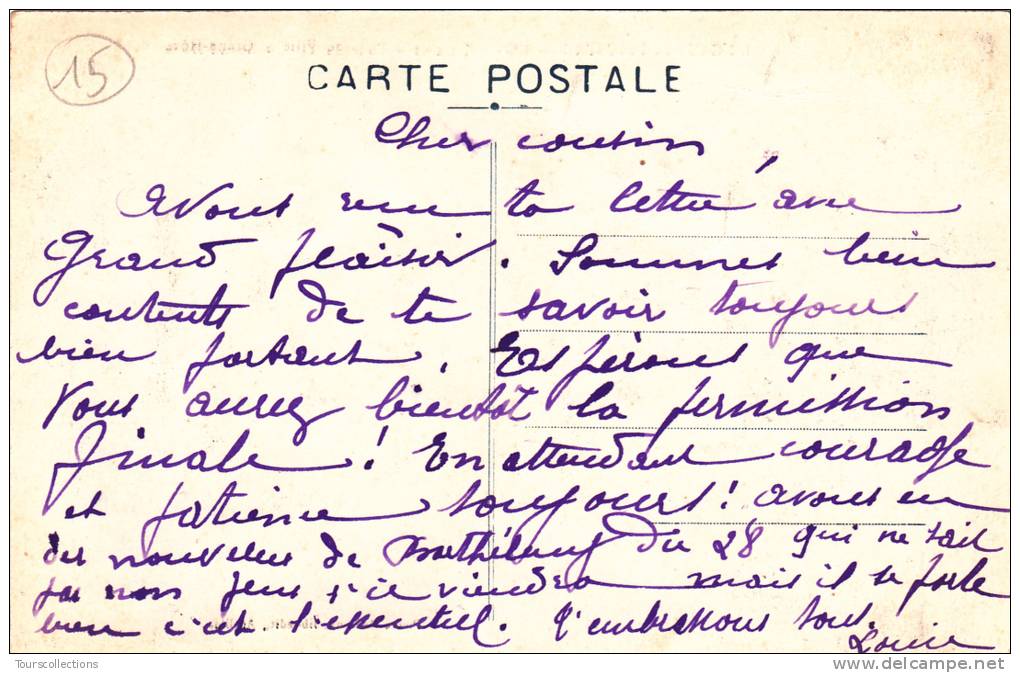 15
CARTE POSTALE
Cher cousin
Avons reçu ta lettre avec
Grand plaisir. Sommes bien
contents de te savoir toujours
bien portant, Espérons que
Vous aurez bientôt la permission
finale ! En attendant courage
et patience toujours ! avons eu
des nouvelles de du 28 qui ne sait
pas non plus s'il viendra mais il se porte
bien c'est l'essentiel. T'embrassons tous.
Louise
Tourscollections
www.delcampe.net